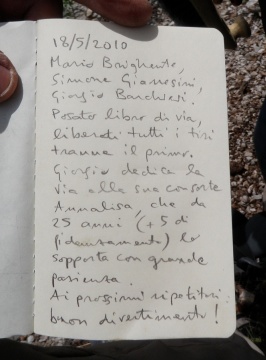 18/5/2010
Mario Brighente,
Simone Gianesini,
Giorgio Barchiesi.
Posato libro di via,
liberati tutti i tiri
tranne il primo.
Giorgio dedica la
via alla sua consorte
Annalisa, che da
25 anni (+5 di
fidanzamento) lo
sopporta con grande
pazienza.
Ai prossimi ripetitori:
buon divertimento!